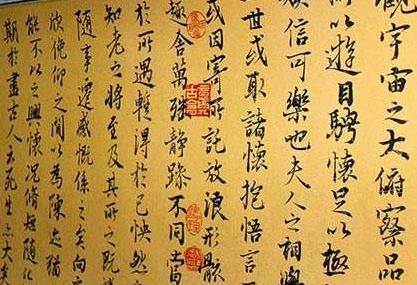 觀宇宙之大俯察品
所以遊目騁懷足以極
娛信可樂也夫人之相與
世或取諸懷抱悟言
或因寄所託放浪形骸
趣舍萬殊靜躁不同當
於所遇暫得於己怏然
知老之將至及其所之既
隨事遷感慨係之矣向
欣俛仰之間以為陳迹猶
能不以之興懷況脩短隨化
期於盡古人云死生亦大矣